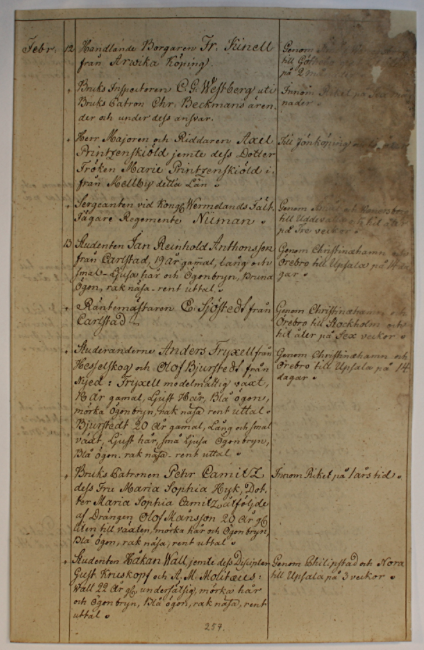 Febr. 12 Handlande Borgaren Fr. Kinell
från Arwika Köping.
Genom
till Göthe
på 2 m
" Bruks Inspectoren C. G. Westberg uti
Bruks Patron Chr. Beckmans ären-
der och under dess answar.
Inom Riket på
nader
" Herr Majoren och Riddaren Axel
Printzenskiöld jemte dess Dotter
Fröken Marie Printzenskiöld
från Kellby detta Län
Till Jönköping
" Sergeanten vid Kongl. Wermelands Fält
Jägare Regemente Nieman
Genom
till Uddevalla
på Tre veckor
13 Studenten Jan Reinhold Anthonsson
från Carlstad, 19 år gamal, Lång och
smal, Ljusa hår och Ögonbryn, Bruna
Ögon, rak näsa, rent uttal
Genom Christinehamn
Örebro till Upsala på 14
gar
" Räntemästaren C. Sjöstedt från
Carlstad
Genom Christinehamn
Örebro till Stockholm och
till åter på Sex veckor
" Studeranderne Anders Fryxell från
Hesselskog och Olof Bjurstedt från
Nyed: Fryxell medelmåttig växt,
18 år gamal, Ljust Hår, Blå ögon,
mörka Ögonbryn, rak näsa, rent uttal
Bjurstedt 20 år gamal, Lång och smal
växt, Ljust hår, små Ljusa Ögonbryn,
Blå ögon, rak näsa, rent uttal.
Genom Christinehamn och
Örebro till Upsala på 14
dagar
" Bruks Patronen Pehr Camitz
dess Fru Maria Sophia Ryk, Dot-
ter Maria Sophia Camitz åtföljde
af Drängen Olof Månsson 20 år g
liten till vexten, mörka hår och Ögonbryn,
Blå ögon, rak näsa, rent uttal
Inom Riket på 1 års tid
" Studenten Håkan Wall jemte dess Disciplar
Gust. Kruskopf och A. M. Molitæus:
Wall 22 år g. undersätsig, mörka hår
och Ögonbryn, Blå ögon, rak näsa, rent
uttal
Genom Philipstad och Nora
till Upsala på 3 veckor
257.